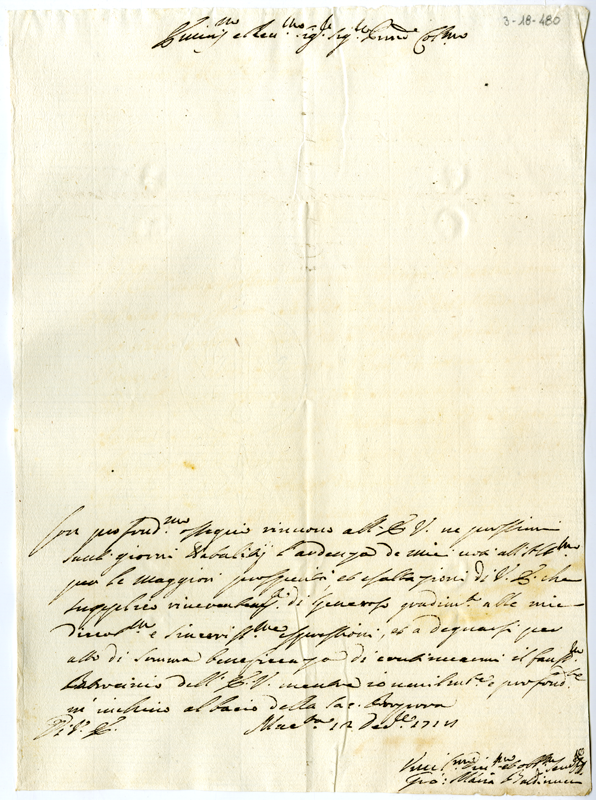 3-18-480
Emin.mo e Rev.mo Sig.re Sig.re Pron.e Col.mo
Con profond.mo ossequio rinuovo all'E. V. ne prossimi
santi giorni Natalitij l'ardenza de miei voti all'Altmo
per le maggiori prosperità et esaltazioni di V. E. che
supplico riverentem.e di generoso gradim.to alle mie
divot.me e sinceriss.me espressioni, et a degnarsi per
atto di somma beneficenza di continuarmi il
Patrocinio dell'E. V. mentre io umilm.te e profond.te
m'inchino al bacio della Sac. Porpora
Di V. E. Mac.ta 12 Xbre 1714
Gio: Maria Baldinucci